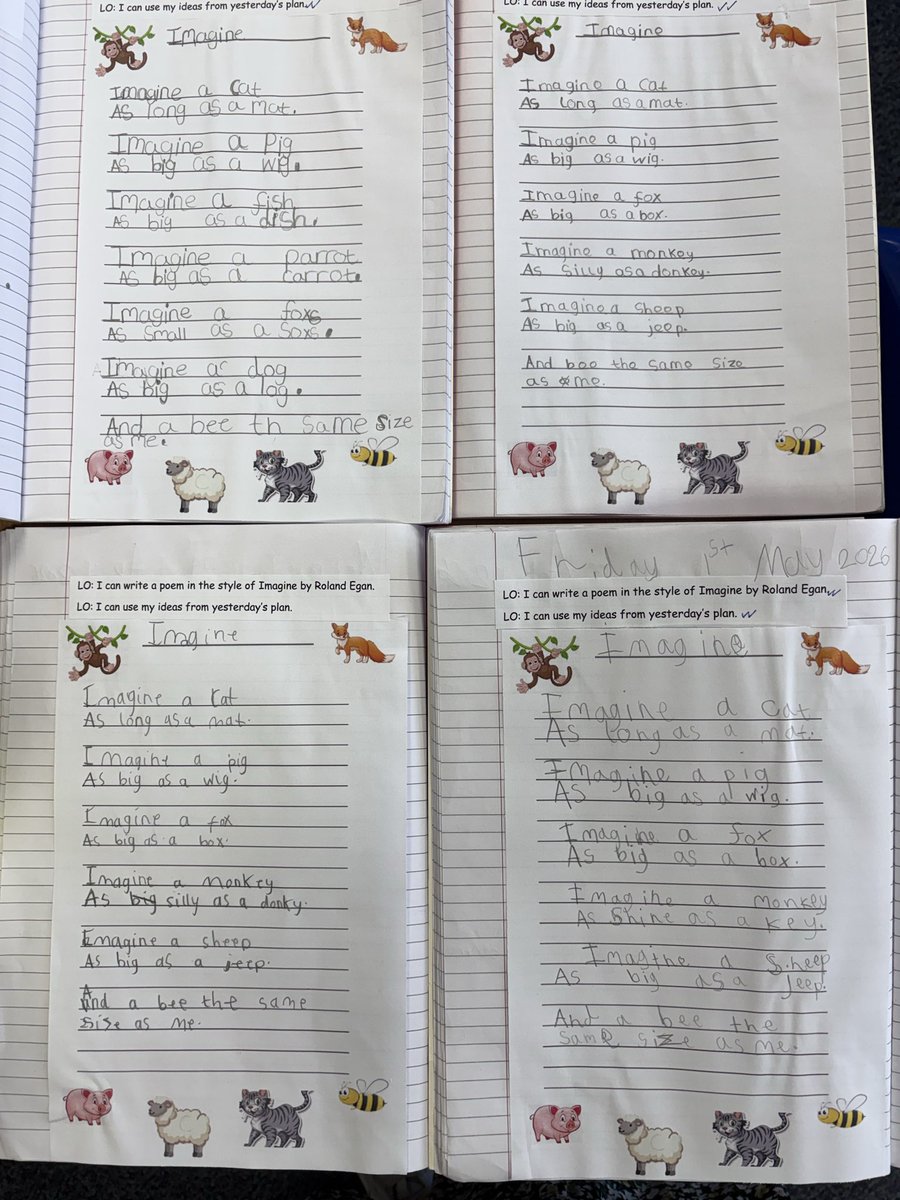 LO: I can use my ideas from yesterday's plan.
Imagine
Imagine a cat
As long as a mat.
Imagine a Pig
As big as a wig.
Imagine a fish
As big as a dish.
Imagine a parrot
As big as a carrot.
Imagine a foxs
As small as a soxs.
Imagine a dog
As big as a log.
And a bee th same size
as me.
LO: I can use my ideas from yesterday's plan.
Imagine
Imagine a cat
As long as a mat.
Imagine a pig
As big as a wig.
Imagine a fox
As big as a box.
Imagine a monkey
As silly as a donkey.
Imagine a sheep
As big as a jeep.
And bee the same size
as me.
LO: I can write a poem in the style of Imagine by Roland Egan.
LO: I can use my ideas from yesterday's plan.
Imagine
Imagine a cat
As long as a mat.
Imagine a pig
As big as a wig.
Imagine a fox
As big as a box.
Imagine a monkey
As big silly as a donky.
Imagine a sheep
As big as a jeep.
And a bee the same
size as me.
Friday 1st May 2026
LO: I can write a poem in the style of Imagine by Roland Egan.
LO: I can use my ideas from yesterday's plan.
Imagine
Imagine a cat
As long as a mat.
Imagine a pig
As big as a wig.
Imagine a fox
As big as a box.
Imagine a monkey
As Shine as a key.
Imagine a Sheep
As big as a jeep.
And a bee the
same size as me.